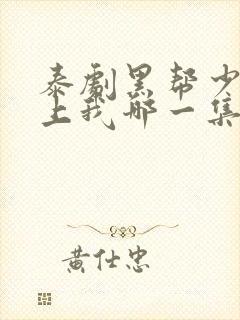 泰剧黑帮少
上我那一集
黄仕忠